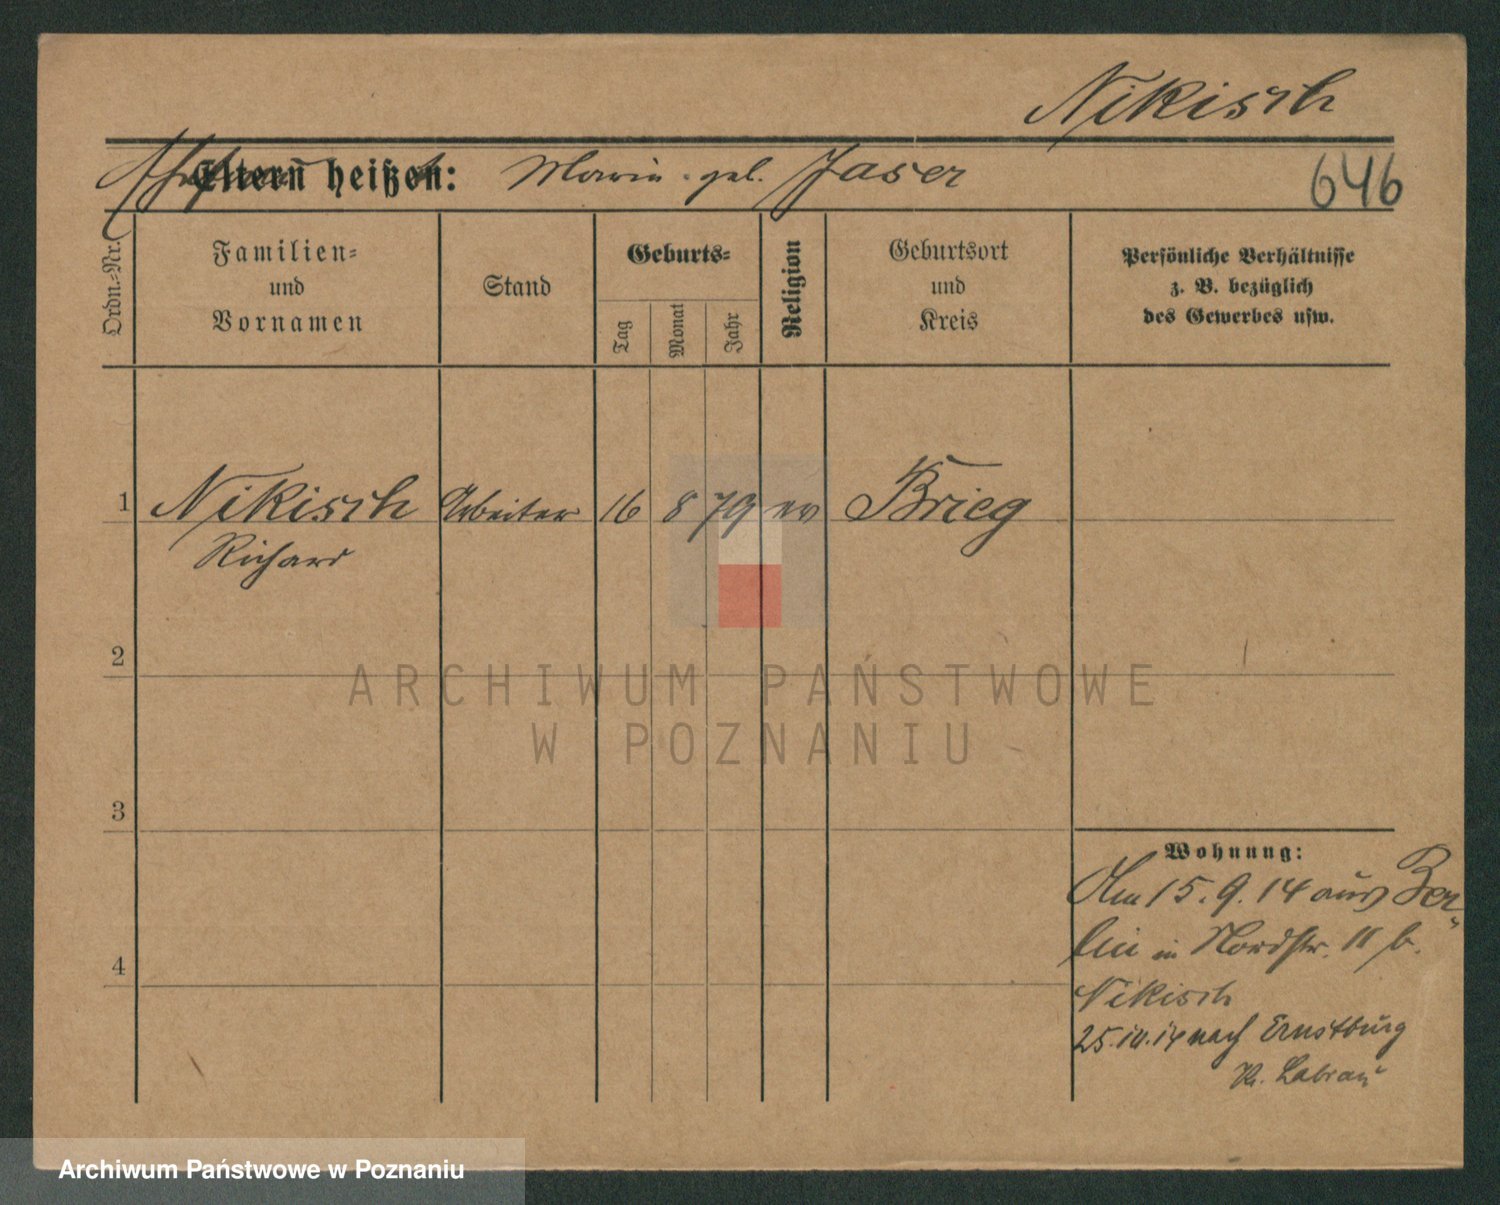 Nikisch
Eltern heißen: Marie geb. Jaser
646
Ordn.-Nr.
Familien-
und
Vornamen
Stand
Geburts-
Tag
Monat
Jahr
Religion
Geburtsort
und
Kreis
Persönliche Verhältnisse
z. B. bezüglich
des Gewerbes usw.
1 Nikisch Arbeiter 16 8 79 ev Brieg
Richard
2
ARCHIWUM PAŃSTWOWE
W POZNANIU
3
Wohnung:
Am 15. 9. 14 aus Ber-
lin in Nordstr. 11 b.
Nikisch
4
25.10.14 nach Ernstburg
Kr.
Archiwum Państwowe w Poznaniu